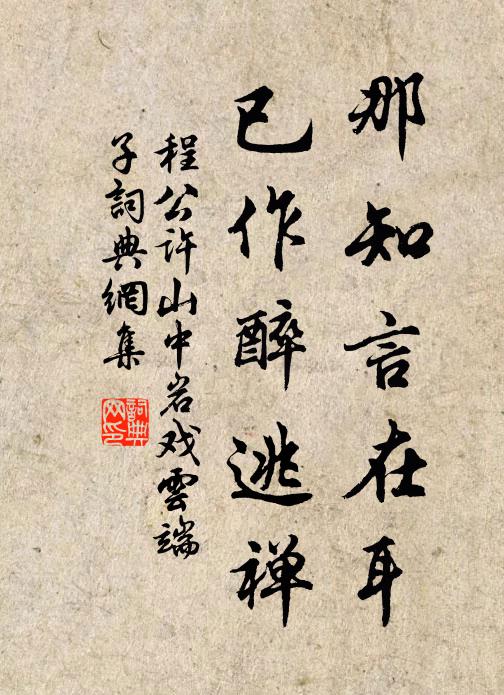 那知言在耳
已作醉逃禅
程公许山中岩戏雲端
子詞典網集
詞典
网印